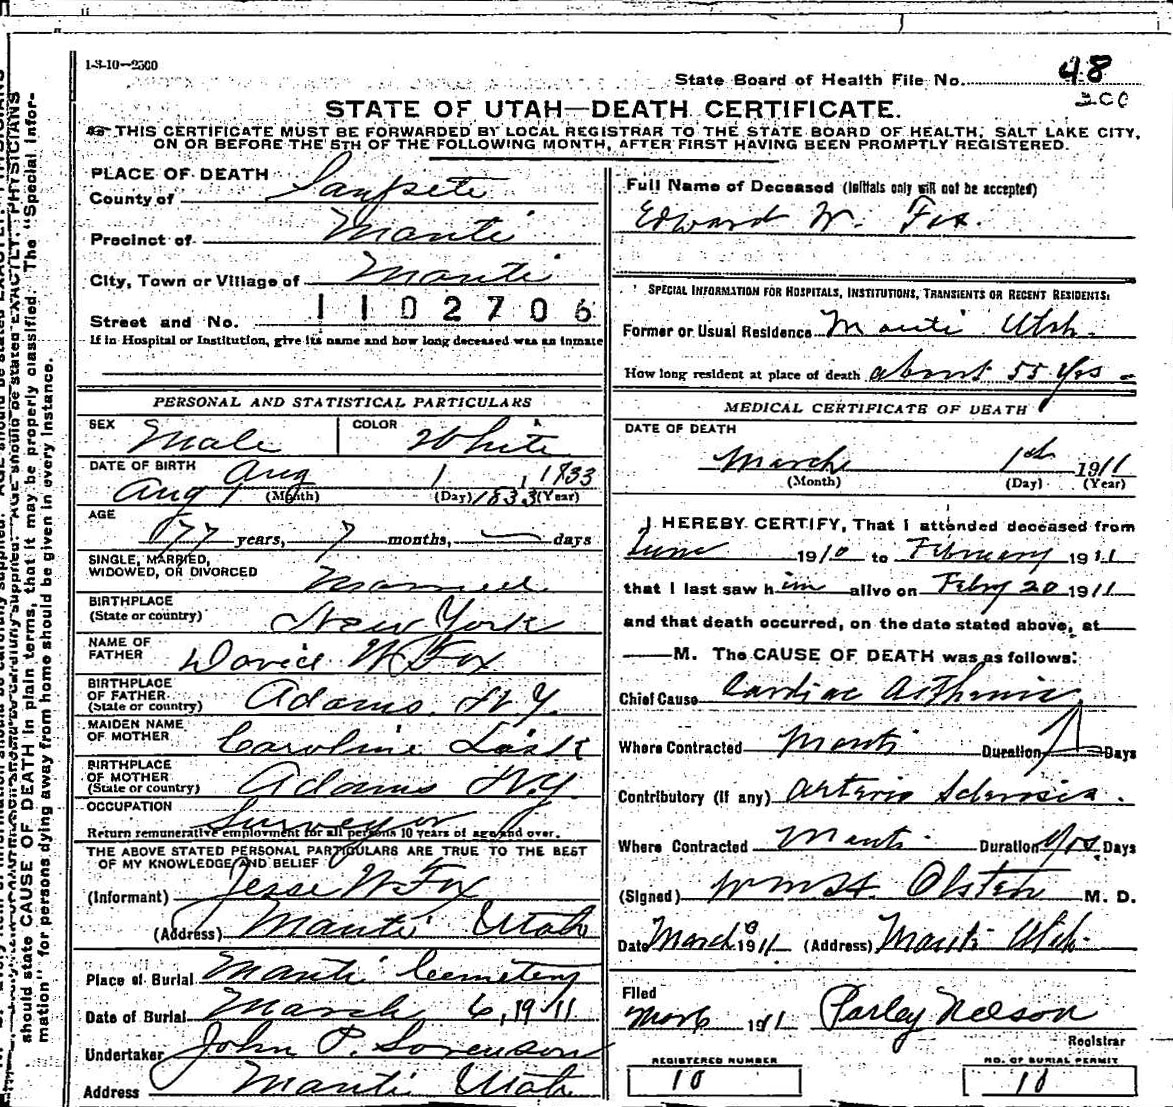 1-3-10—2500
State Board of Health File No. 48
200
STATE OF UTAH—DEATH CERTIFICATE.
THIS CERTIFICATE MUST BE FORWARDED BY LOCAL REGISTRAR TO THE STATE BOARD OF HEALTH, SALT LAKE CITY,
ON OR BEFORE THE 5TH OF THE FOLLOWING MONTH, AFTER FIRST HAVING BEEN PROMPTLY REGISTERED.
PLACE OF DEATH
County of Sanpete
Precinct of Manti
City, Town or Village of Manti
1102706
Street and No.
If in Hospital or Institution, give its name and how long deceased was an inmate
PERSONAL AND STATISTICAL PARTICULARS
SEX Male COLOR White
DATE OF BIRTH Aug 1, 1833
Aug 1 1833
(Month) (Day) (Year)
AGE
77 years, 7 months, — days
SINGLE, MARRIED,
WIDOWED, OR DIVORCED Married
BIRTHPLACE
(State or country) New York
NAME OF
FATHER David W Fox
BIRTHPLACE
OF FATHER
(State or country) Adams N.Y.
MAIDEN NAME
OF MOTHER Caroline
BIRTHPLACE
OF MOTHER
(State or country) Adams N.Y.
OCCUPATION Surveyor
Return remunerative employment for all persons 10 years of age and over.
THE ABOVE STATED PERSONAL PARTICULARS ARE TRUE TO THE BEST
OF MY KNOWLEDGE AND BELIEF
(Informant) Jesse W Fox
(Address) Manti Utah
Place of Burial Manti Cemetery
Date of Burial March 6, 1911
Undertaker John P. Sorenson
Address Manti Utah
Full Name of Deceased (Initials only will not be accepted)
Edward W. Fox.
SPECIAL INFORMATION FOR HOSPITALS, INSTITUTIONS, TRANSIENTS OR RECENT RESIDENTS:
Former or Usual Residence Manti Utah.
How long resident at place of death about 55 Yrs
MEDICAL CERTIFICATE OF DEATH
DATE OF DEATH
March 1st 1911
(Month) (Day) (Year)
I HEREBY CERTIFY, That I attended deceased from
June 1910 to February 1911
that I last saw him alive on Febry 20 1911
and that death occurred, on the date stated above, at
M. The CAUSE OF DEATH was as follows:
Chief Cause Cardiac Asthenia
Where Contracted Manti Duration Days
Contributory (if any) Arterio Sclerosis.
Where Contracted Manti Duration Yrs. Days
(Signed) Wm H. Olsten M. D.
Date March 1911 (Address) Manti Utah.
Filed
Mar 6 1911 Parley Nelson
Registrar
REGISTERED NUMBER NO. OF BURIAL PERMIT
10 10
should state CAUSE OF DEATH in plain terms, that it may be properly classified. The "Special Infor-
mation" for persons dying away from home should be given in every instance.